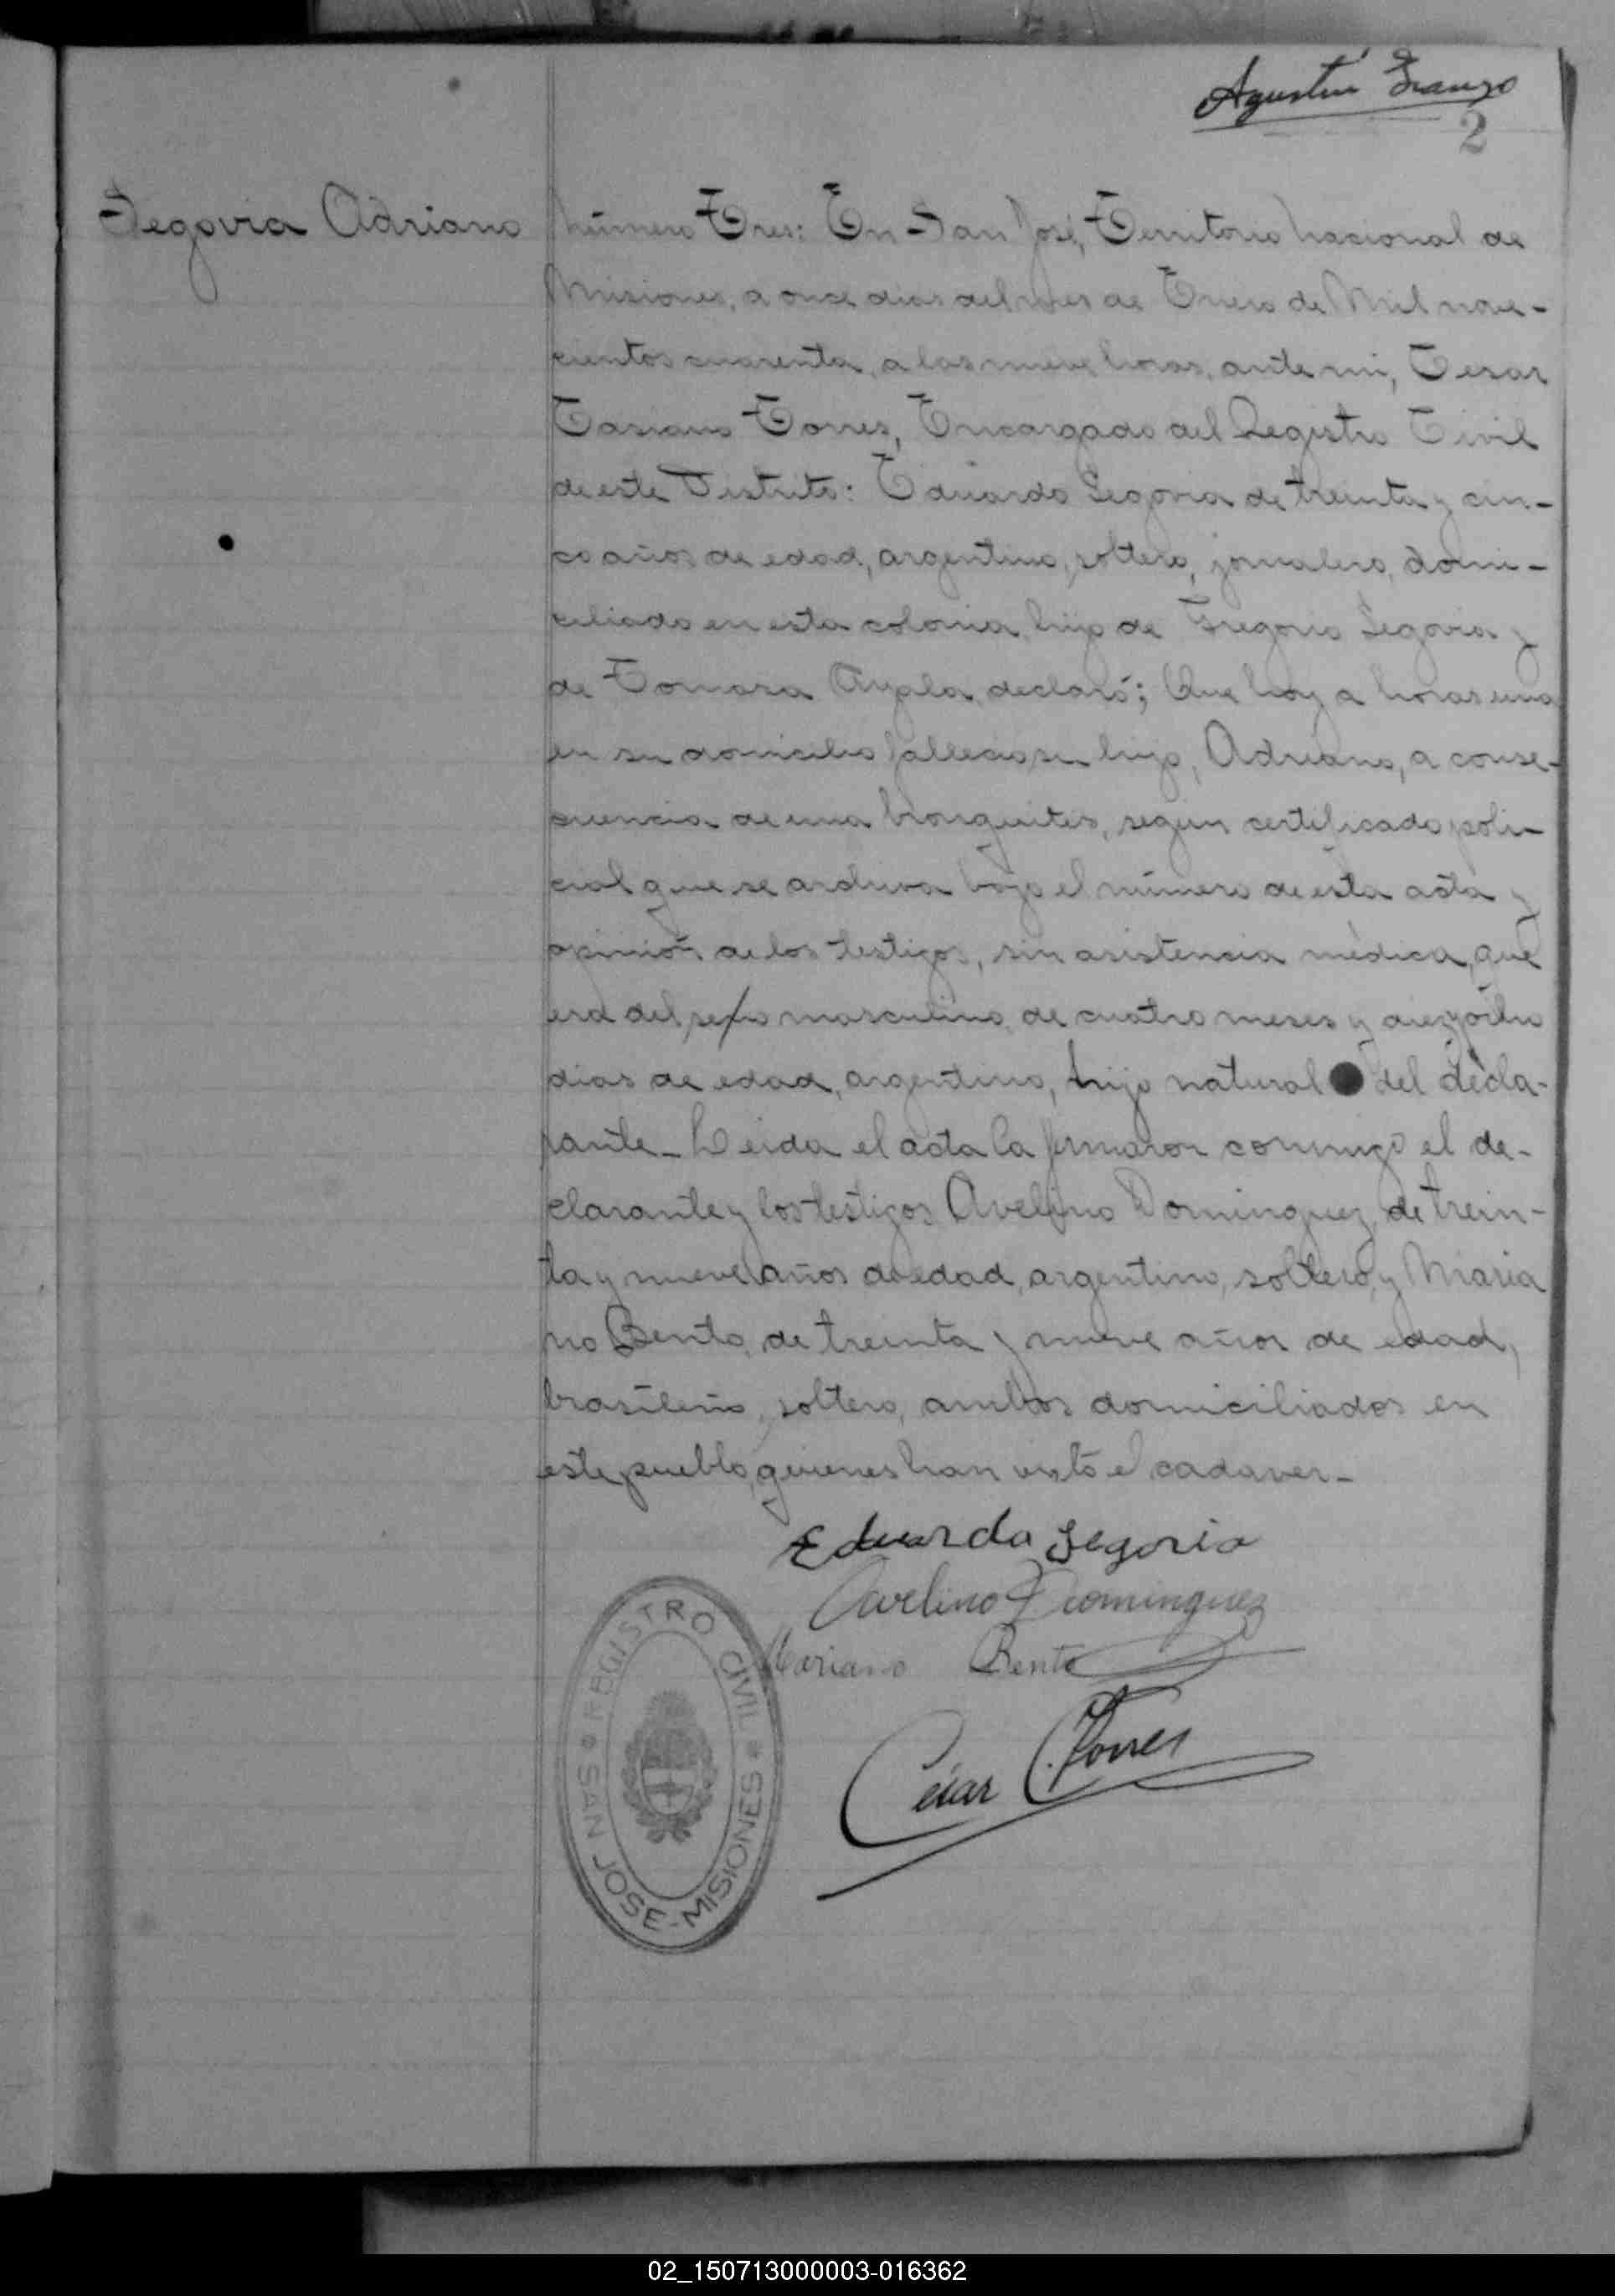 Agustín
2
Segovia Adriano
Número Tres: En San José, Territorio Nacional de
Misiones, a once dias del mes de Enero de Mil nove-
cientos cuarenta, a las nueve horas, ante mi, Cesar
Casiano Torres, Encargado del Registro Civil
de este Distrito: Eduardo Segovia de treinta y cin-
co años de edad, argentino, soltero, jornalero, domi-
ciliado en esta colonia, hijo de Gregorio Segovia y
de Tomasa Ayala, declaró; Que hoy a horas una
en su domicilio fallecio su hijo, Adriano, a conse-
cuencia de una bronquitis, según certificado poli-
cial que se archiva bajo el número de esta acta y
opinión de los testigos, sin asistencia médica, que
era del sexo masculino, de cuatro meses y diez y ocho
dias de edad, argentino, hijo natural del decla-
rante_ Leida el acta la firmaron conmigo el de-
clarante y los testigos Avelino Dominguez, de trein-
ta y nueve años de edad, argentino, soltero, y Maria
no Bento, de treinta y nueve años de edad,
brasileño, soltero, ambos domiciliados en
este pueblo, quienes han visto el cadaver_
Eduardo Segovia
Avelino Dominguez
Mariano Bento
César C. Torres
REGISTRO CIVIL
SAN JOSE-MISIONES
02_150713000003-016362